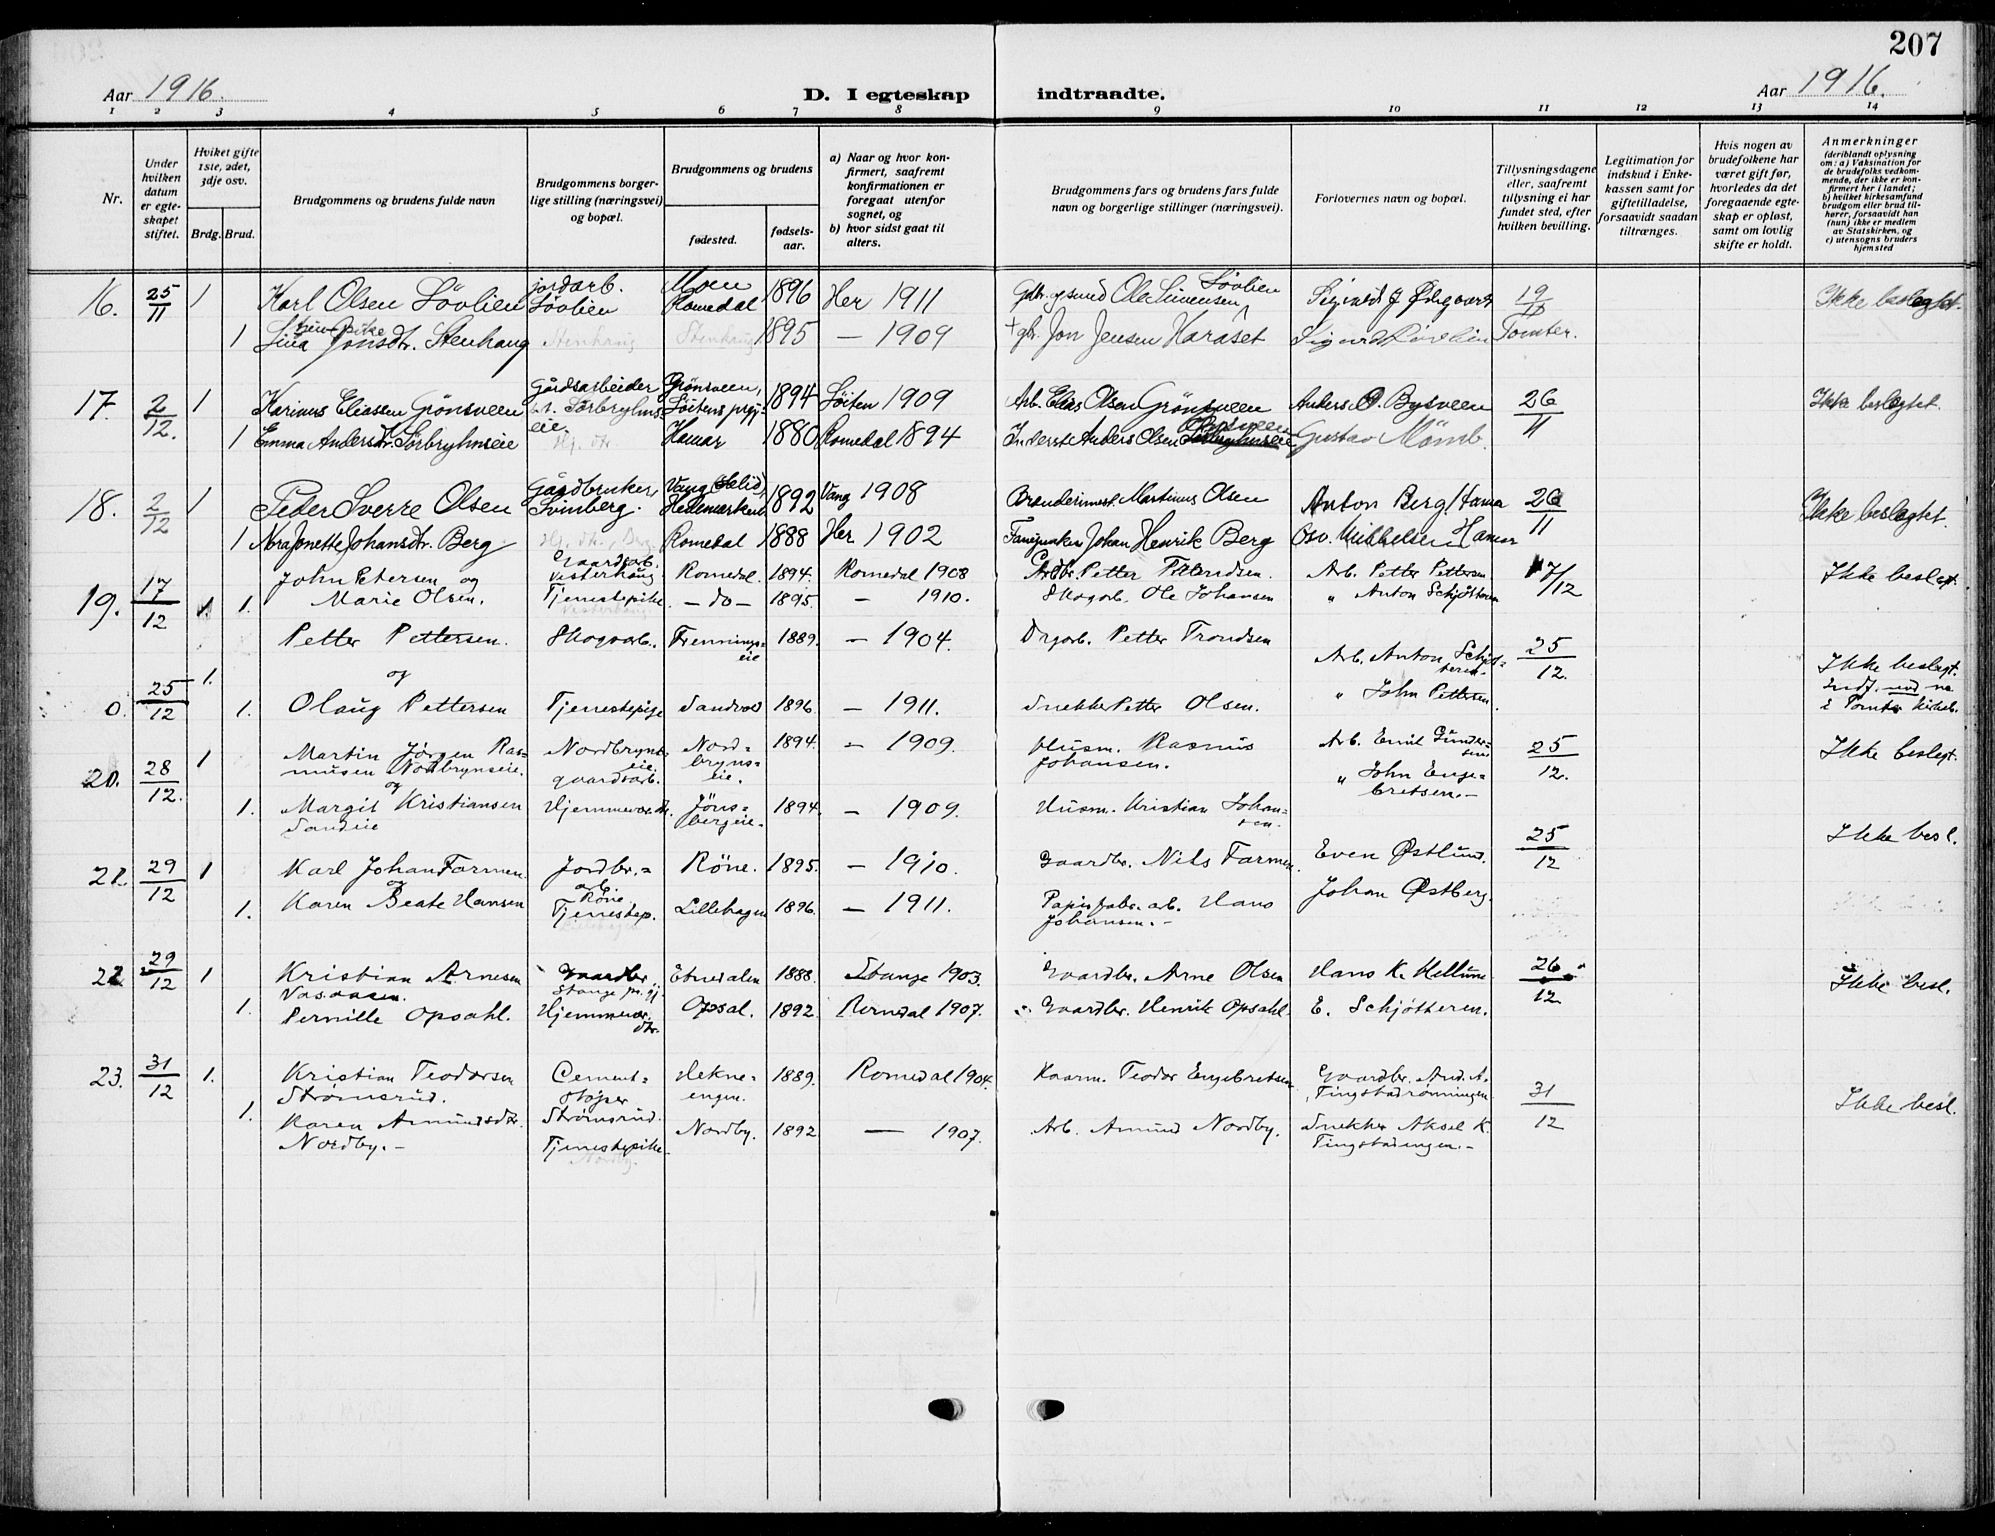 207
Aar 1916.
D. I egteskap indtraadte.
Aar 1916.
1 2 3 4 5 6 7 8 9 10 11 12 13 14
Nr.
Under
hvilken
datum
er egte-
skapet
stiftet.
Hviket gifte
1ste, 2det,
3dje osv.
Brdg. Brud.
Brudgommens og brudens fulde navn
Brudgommens borger-
lige stilling (næringsvei)
og bopæl.
Brudgommens og brudens
fødested.
fødsels-
aar.
a) Naar og hvor kon-
firmert, saafremt
konfirmationen er
foregaat utenfor
sognet, og
b) hvor sidst gaat til
alters.
Brudgommens fars og brudens fars fulde
navn og borgerlige stillinger (næringsvei).
Forlovernes navn og bopæl.
Tillysningsdagene
eller, saafremt
tillysning ei har
fundet sted, efter
hvilken bevilling.
Legitimation for
indskud i Enke-
kassen samt for
giftetilladelse,
forsaavidt saadan
tiltrænges.
Hvis nogen av
brudefolkene har
været gift før,
hvorledes da det
foregaaende egte-
skap er opløst,
samt om lovlig
skifte er holdt.
Anmerkninger
(deriblandt oplysning
om: a) Vaksination for
de brudefolks vedkom-
mende, der ikke er kon-
firmert her i landet;
b) hvilket kirkesamfund
brudgom eller brud til-
hører, forsaavidt han
(hun) ikke er medlem
av Statskirken, og
c) utensogns bruders
hjemsted
16. 25/11 1 Karl Olsen Lövlien jordarb. Lövlien Moen Romedal 1896 Her 1911 Ole Simensen Lövlien 19/11 Ikke beslegtet.
1 Lina Jonsdtr. Stenhaug Stenhaug Stenhaug 1895 — 1909 + gbr. Jon Jensen Haraset Sigurd Lövlien Tomter.
17 2/12. 1 Karinus Eliassen Grönsveen Gårdsarbeider Sörbryhns-eie. Grönsveen, Löitens prgj. 1894 Löiten 1909 Arb. Elias Olsen Grönsveen Anders O. Bysveen 26/11 Ikke beslegtet.
1 Emma Andersdtr. Sörbryhnseie Hj. dtr. Hamar 1880 Romedal 1894 Inderst Anders Olsen Bysveen Gustav
18. 2/12 1 Peder Sverre Olsen Gårdbruker, Svinberg. Vang Hedemarken 1892 Vang 1908 Martinus Olsen Anton Berg Hamar 26/11 Ikke beslegtet.
1 Nora Jonette Johansdtr. Berg. Hj. dtr., Berg Romedal 1888 Her 1902 Johan Henrik Berg Osv. Hamar
19. 17/12 1 1. John Petersen og Gaardsarb. Vesterhaug Romedal. 1894. Romedal 1908 Petter Arb. Petter Pettersen 17/12 Ikke beslegt.
Marie Olsen. Tjenestepike Vesterhaug — do — 1895. — 1910. Skogarb. Ole Johansen „ Anton Schjötteren
Petter Pettersen. Skogsarb. Frennings-eie 1889. — 1904. Petter Trondsen Arb. Anton Schjöt-teren. 25/12.
og
0. 25/12 1. 1. Olaug Pettersen Tjenestepige Sandvold 1896. — 1911. Snekker Petter Olsen. „ John Pettersen. Ikke beslegt.
20. 28/12. 1 Martin Jörgen Ras-musen Nordbrynseie. Nordbryns-eie. gaardsarb. Nord-bryns-eie. 1894. — 1909. Husm. Rasmus Johansen. Arb. Emil Gunder-sen 25/12. Ikke beslegt.
og
1. Margit Kristiansen Sandeie Hjemmev. dtr. Jöns-bergeie. 1894. — 1909. Husm. Kristian Johan-sen. „ John Enge-bretsen. —
21. 29/12 1 Karl Johan Farmen. Jordbr.-arb. Röne Röne. 1895. — 1910. Gaardbr. Nils Farmen. Even Østlund. 25/12 Ikke besl.
og
1. Karen Beate Hansen Tjenestep. Lillehagen 1896. — 1911. Papirfabr. arb. Hans Johansen. — Johan Østberg.
22. 29/12 1 Kristian Arnesen Vasaasen. Gaardbr. Stange pr.gj. Etnedalen 1888. Stange 1903. Gaardbr. Arne Olsen Hans K. Mellum. 26/12 Ikke besl.
1. Pernille Opsahl. Hjemmevær. dtr. Opsal. 1892. Romedal 1907. Gaardbr. Henrik Opsahl. E. Schjötteren.
23. 31/12 1. Kristian Teodorsen Strömsrud. Cement-stöper Strömsrud. Hekne-engen. 1889. Romedal 1904. Teodor Engebretsen Gaardbr. And. A. Tingstadrönningen 31/12 Ikke besl.
1. Karen Amundsdtr. Nordby. — Tjenestepike Nordby. Nordby. 1892. — 1907. Arb. Amund Nordby. Snekker Aksel K. Tingstadengen. —